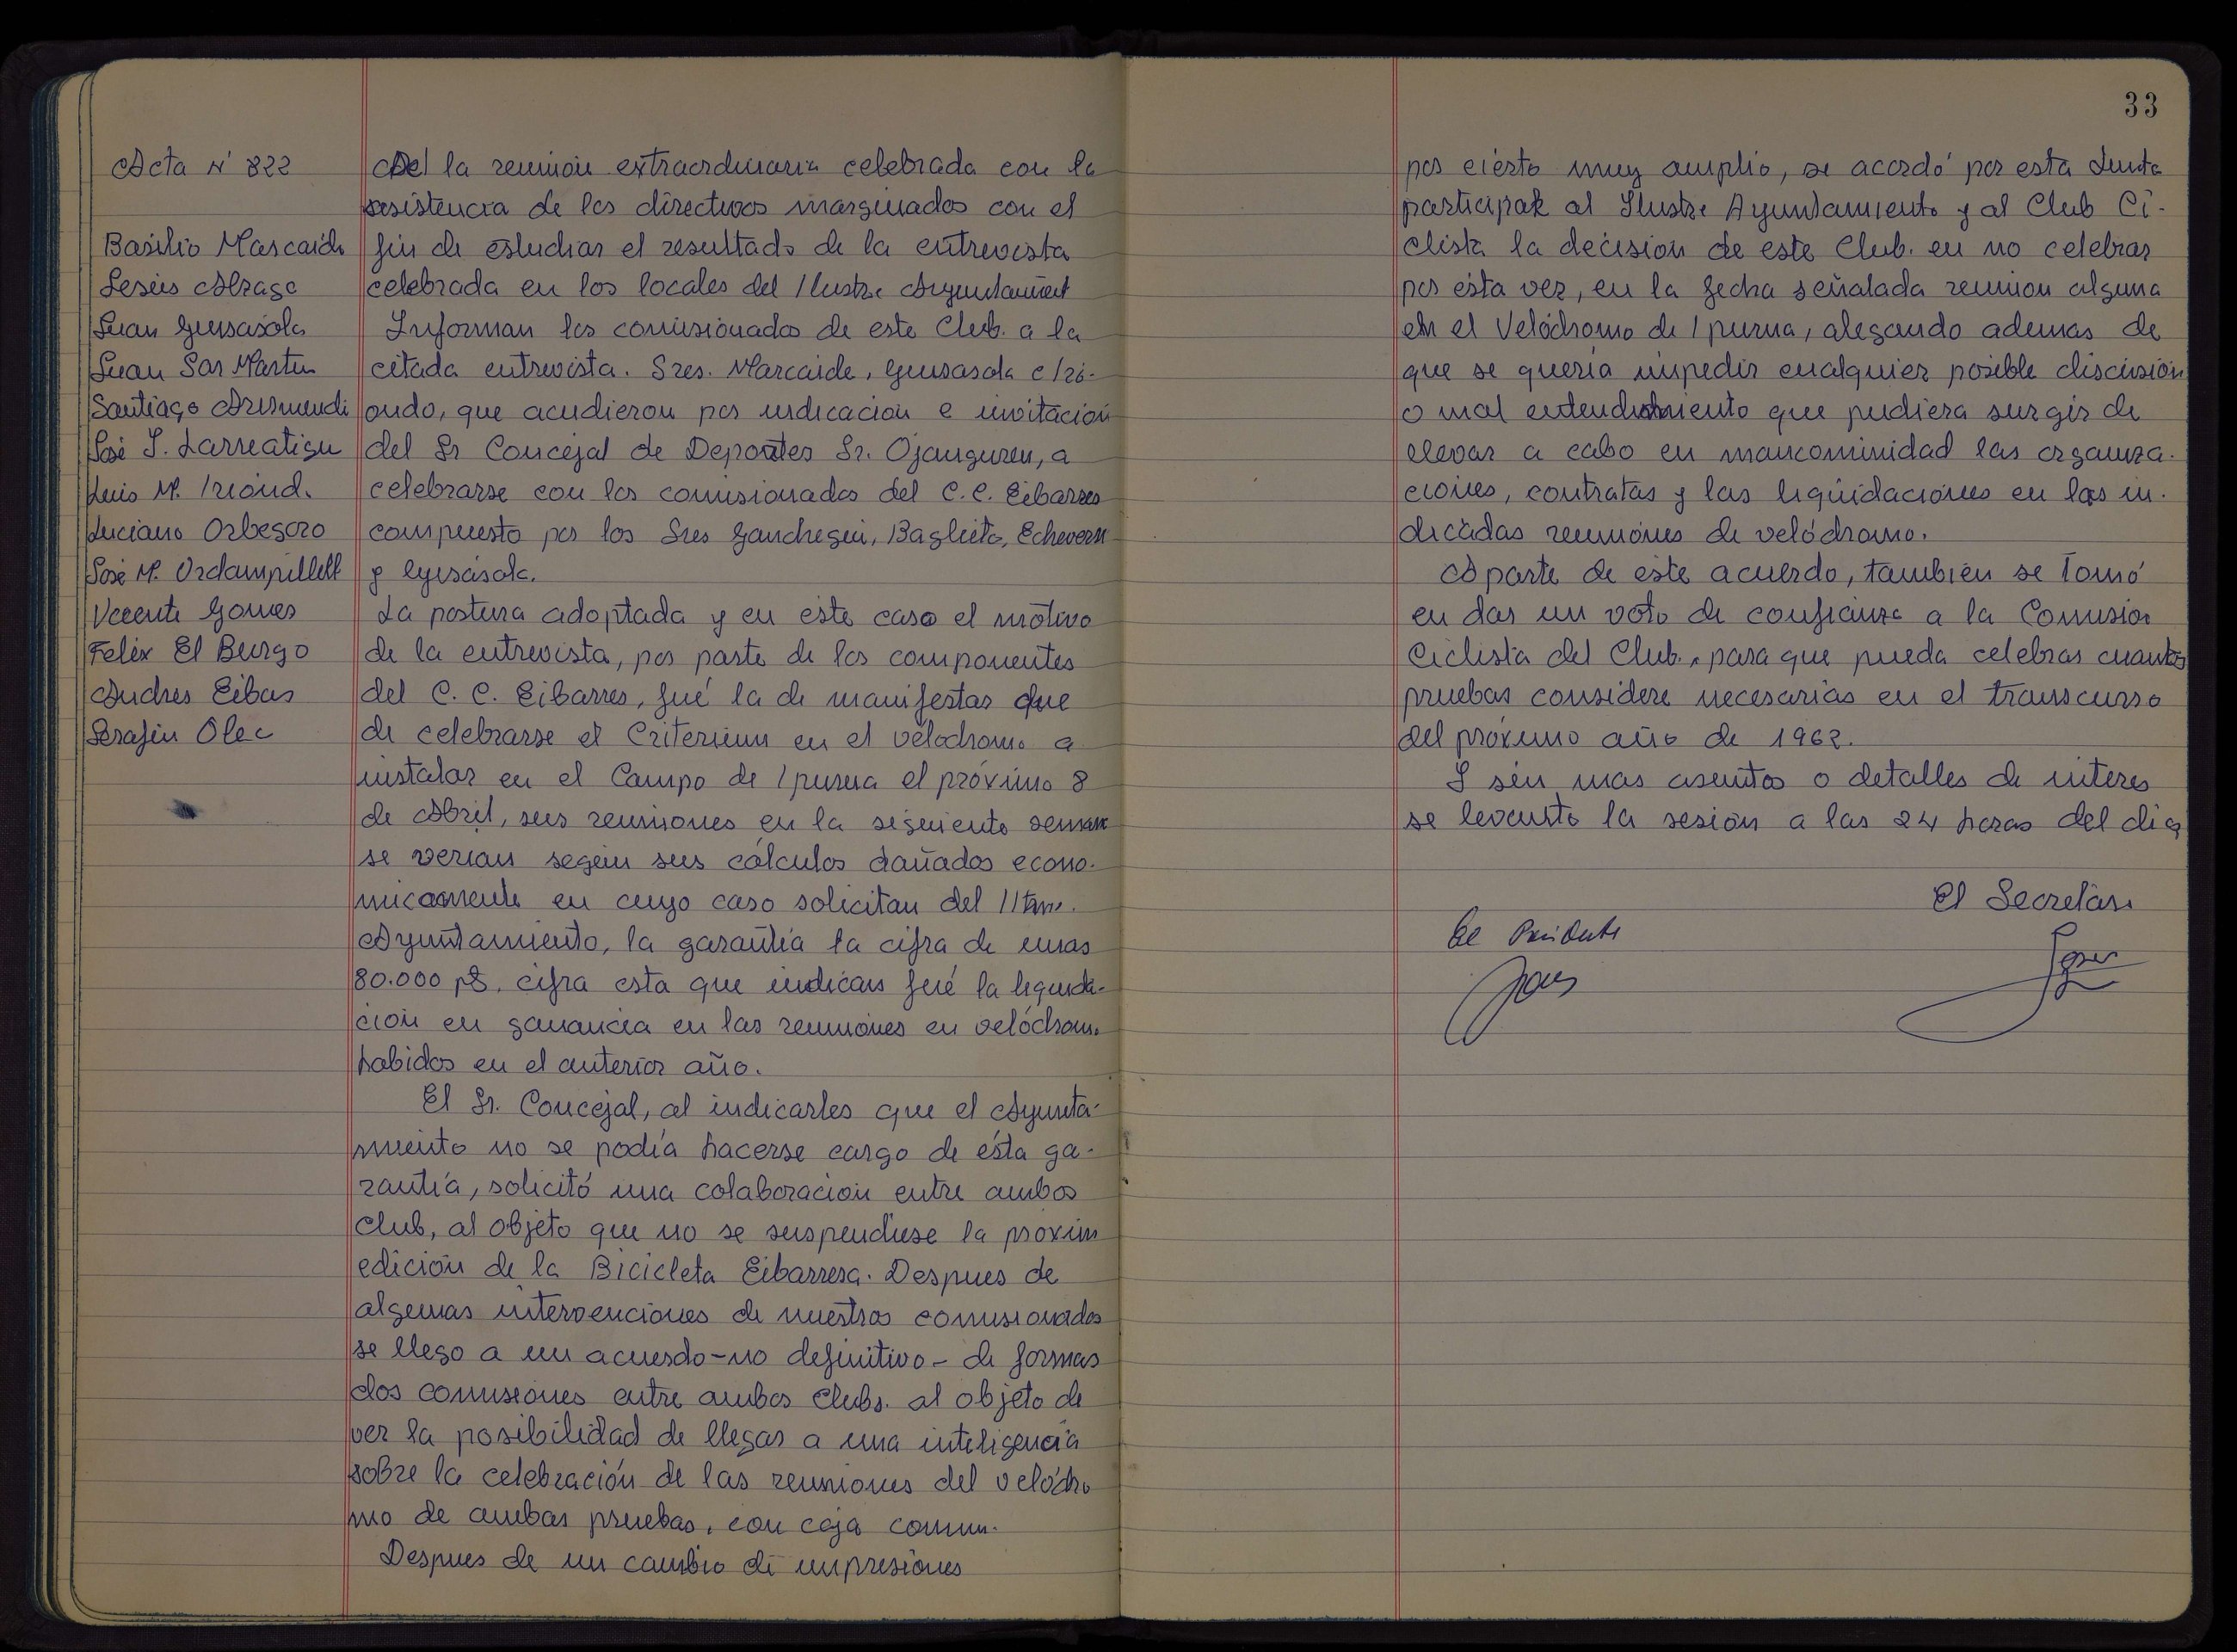 33
Acta Nº 822
Basilio Marcaide
Jesús Alzaga
Juan Guisasola
Juan San Martin
Santiago Arismendi
José J. Larreategui
Luis M. Iriond.
Luciano Orbegozo
José M. Urdampillett
Vicente Gomes
Felix El Burgo
Andres Eibar
Serafin Olec
Del la reunión extraordinaria celebrada con la
asistencia de los directivos marginados con el
fin de estudiar el resultado de la entrevista
celebrada en los locales del Ilustre Ayuntamient
Informan los comisionados de este Club. a la
citada entrevista. Sres. Marcaide, Guisasola e Iri-
ondo, que acudieron por indicacion e invitación
del Sr Concejal de Deportes Sr. Ojanguren, a
celebrarse con los comisionados del C.C. Eibarres
compuesto por los Sres Ganchegui, Baglieto, Echeverri
y Guisasola.
La postura adoptada y en este caso el motivo
de la entrevista, por parte de los componentes
del C. C. Eibarres, fué la de manifestar que
de celebrarse el Criterium en el velodromo a
instalar en el Campo de Ipurua el próximo 8
de Abril, sus reuniones en la siguiente seman
se verian según sus cálculos dañados econo-
micamente en cuyo caso solicitan del Iltmo.
Ayuntamiento, la garantía la cifra de unas
80.000 pts, cifra esta que indican fué la liquida-
ción en ganancia en las reuniones en velódrom.
habidos en el anterior año.
El Sr. Concejal, al indicarles que el Ayunta-
miento no se podía hacerse cargo de ésta ga-
rantía, solicitó una colaboracion entre ambos
Club, al objeto que no se suspendiese la proxim
edición de la Bicicleta Eibarresa. Despues de
algunas intervenciones de nuestros comisionados
se llego a un acuerdo-no definitivo- de formar
dos comisiones entre ambos Clubs. al objeto de
ver la posibilidad de llegar a una inteligencia
sobre la celebración de las reuniones del velódro
mo de ambas pruebas, con caja comun.
Despues de un cambio de impresiones
por cierto muy amplio, se acordó por esta Junta
participar al Ilustre Ayuntamiento y al Club Ci-
clista la decision de este Club. en no celebrar
por esta vez, en la fecha señalada reunion alguna
en el Velódromo de Ipurua, alegando ademas de
que se quería impedir cualquier posible discusión
o mal entendimiento que pudiera surgir de
llevar a cabo en mancominidad las organiza-
ciones, contratas y las liquidaciones en las in-
dicadas reuniones de velódromo.
Aparte de este acuerdo, también se tomó
en dar un voto de confianza a la Comision
Ciclista del Club., para que pueda celebrar cuantas
pruebas considere necesarias en el transcurso
del próximo año de 1962.
I sin mas asuntos o detalles de interes
se levanto la sesión a las 24 horas del dia
El Secretari
El Presidente